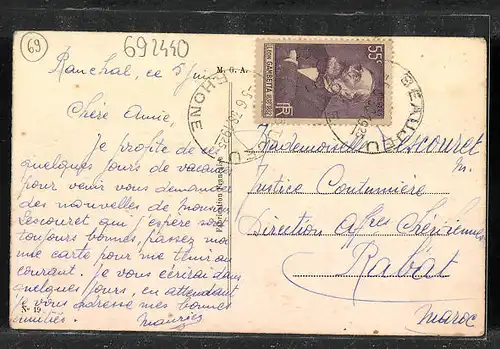 69
692440
M. G. A.
Ranchal, ce 5 juin
Chère Amie,
Je profite de ces
quelques jours de vacances
pour venir vous demander
des nouvelles de monsieur
Lescouret qui j'espère sont
toujours bonnes, passez moi
une carte pour me tenir au
courant. Je vous écrirai dans
quelques jours, en attendant
je vous adresse mes bonnes
amitiés. Maurice
Nº 19
Fabrication Française
55c
LEON GAMBETTA 1838-1882
RF
RHONE
BEAUJEU
Mademoiselle Lescouret
Justice Coutumière
Direction Afres Chérifiennes
Rabat
Maroc